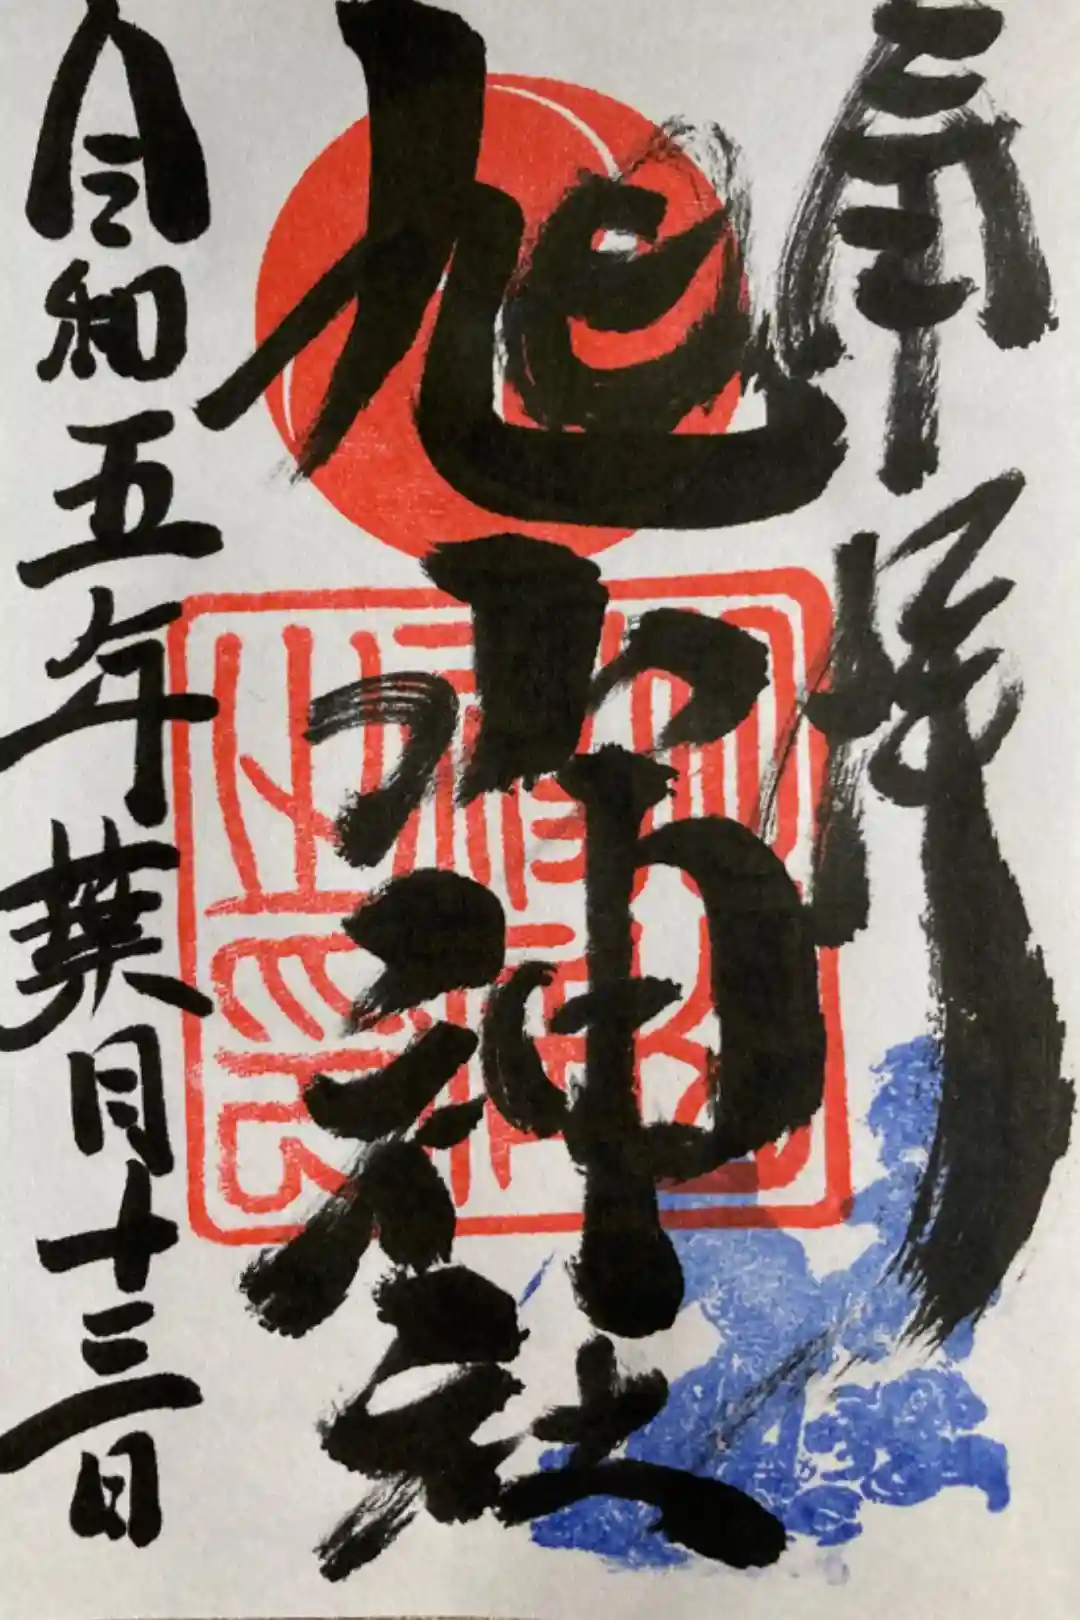 奉拝
旭山神社
令和五年葉月十三日